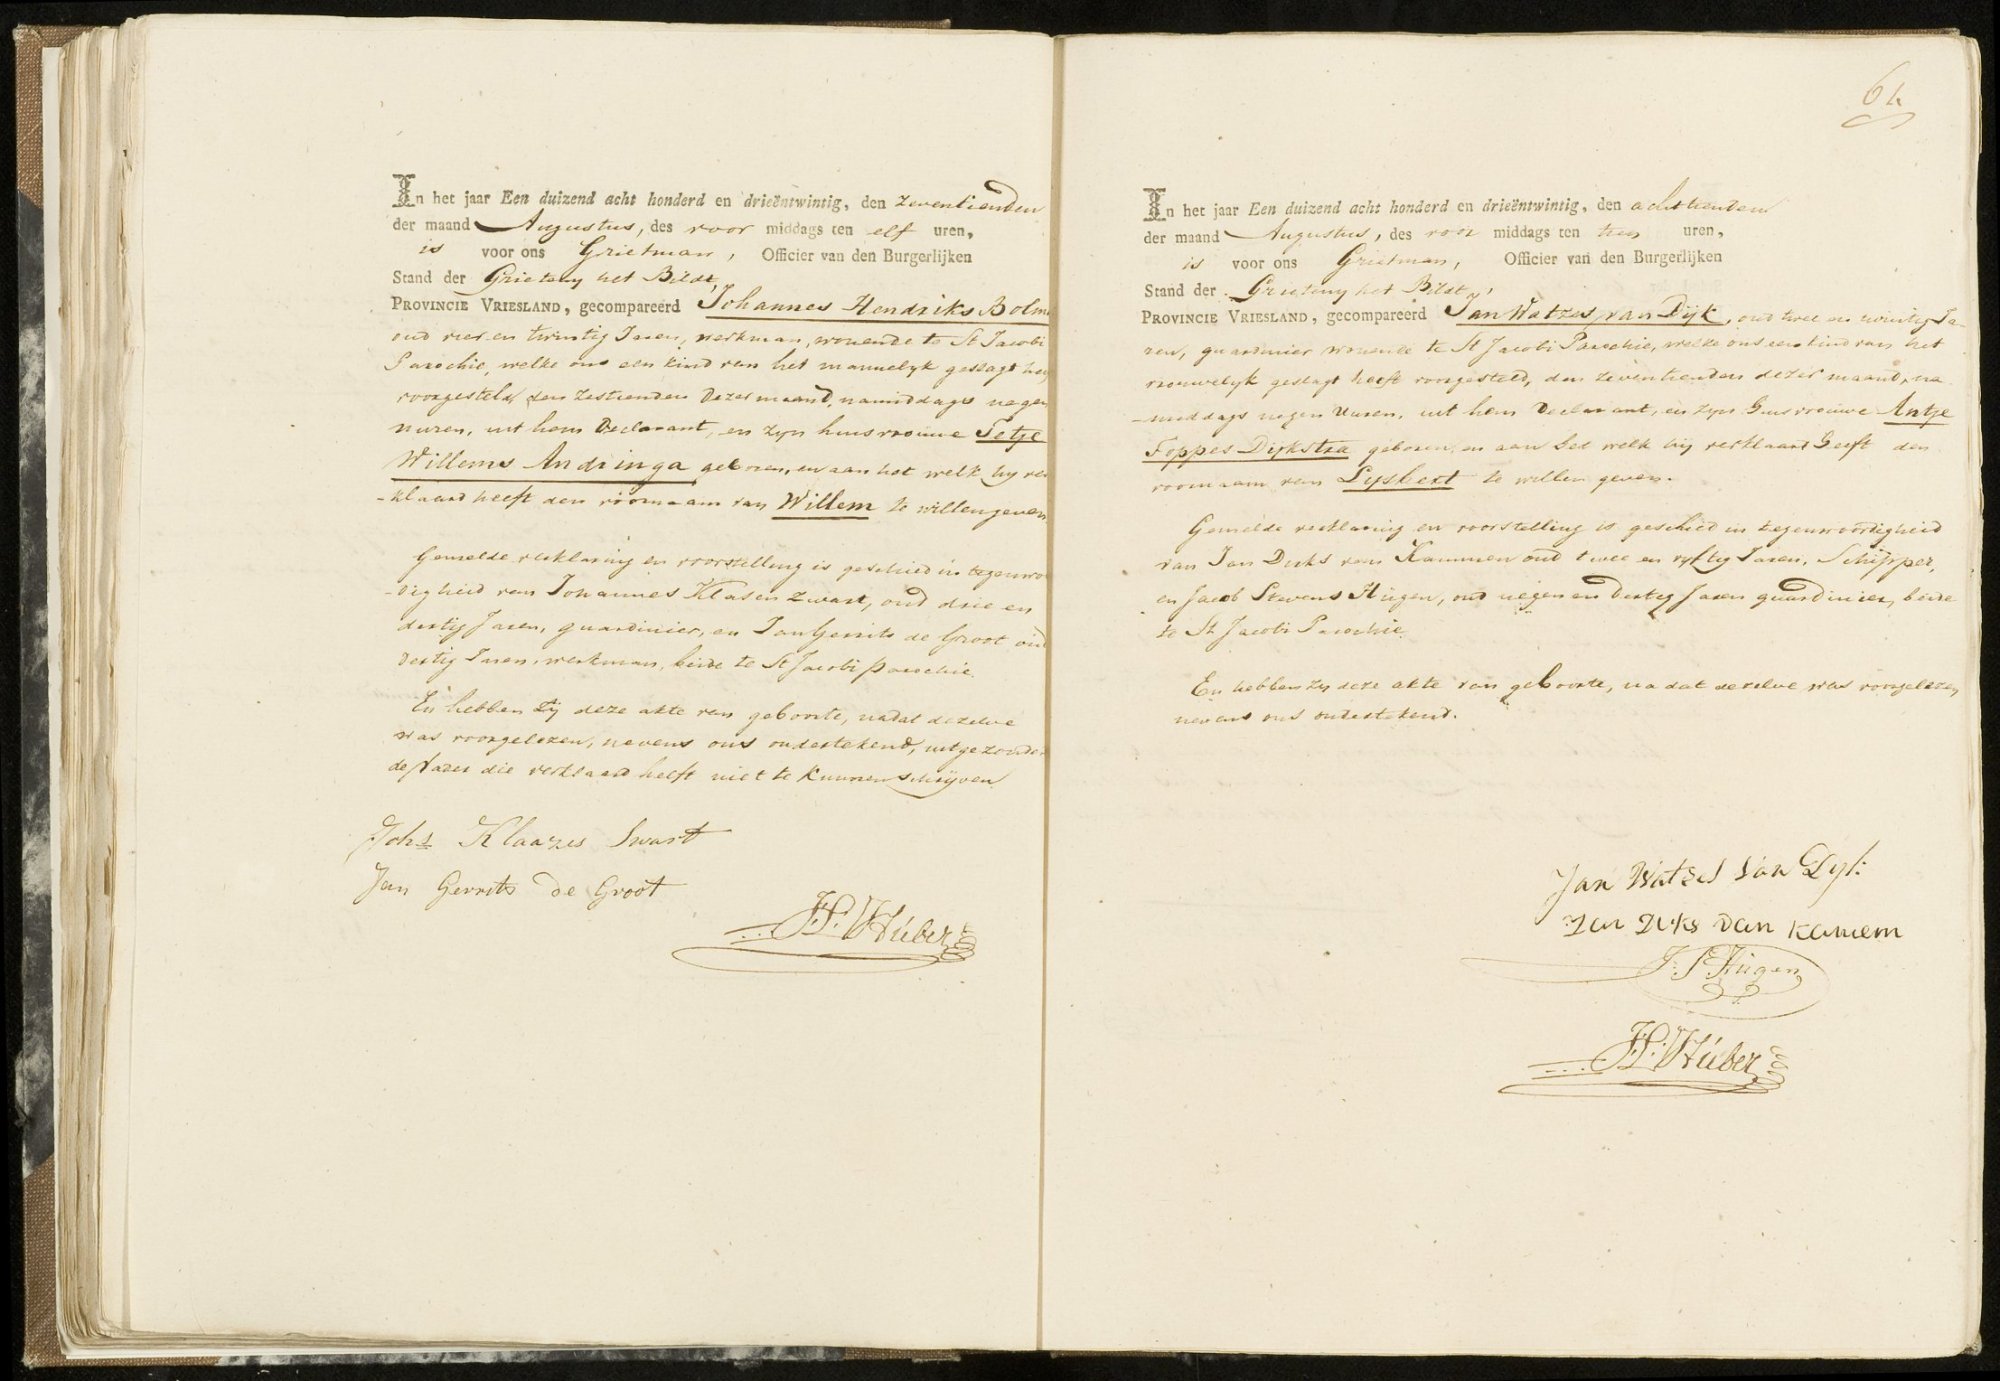 In het jaar Een duizend acht honderd en drieëntwintig, den zeventienden
der maand Augustus, des voor middags ten elf uren,
is voor ons Grietman, Officier van den Burgerlijken
Stand der Grieteny het Bildt,
PROVINCIE VRIESLAND, gecompareerd Johannes Hendriks Bolm
oud vier en twintig Jaren, werkman, wonende te St Jacobi
Parochie, welke ons een kind van het mannelyk geslagt
voorgesteld den zestienden dezer maand, namiddags negen
uuren, uit hem Declarant, en zyn huisvrouwe Tetje
Willems Andringa geboren, en aan het welk hy ver
-klaard heeft den voornaam van Willem te willen geven
Gemelde verklaring en voorstelling is geschied in tegenwo
-digheid van Johannes Klasen Zwart, oud drie en
dertig Jaren, guardinier, en Jan Gerrits de Groot oud
dertig Jaren, werkman, beide te St Jacobi parochie.
En hebben zij deze akte van geboorte, nadat dezelve
was voorgelezen, nevens ons ondertekend, uitgezonder
de Vader die verklaard heeft niet te kunnen schrijven
Johs Klaazes Swart
Jan Gerrits De Groot
Huber
In het jaar Een duizend acht honderd en drieëntwintig, den achttienden
der maand Augustus, des voor middags ten tien uren,
is voor ons Grietman, Officier van den Burgerlijken
Stand der Grieteny het Bildt,
PROVINCIE VRIESLAND, gecompareerd Jan Watzes van Dijk, oud twee en twintig Ja-
ren, guardinier wonende te St Jacobi Parochie, welke ons een kind van het
vrouwelyk geslagt heeft voorgesteld, den zeventienden dezer maand, na
-middags negen Uuren, uit hem Declarant, en zyn huisvrouwe Antje
Foppes Dijkstra geboren, en aan het welk hij verklaard heeft den
voornaam van Lysbert te willen geven.
Gemelde verklaring en voorstelling is geschied in tegenwoordigheid
van Jan Dirks van Kammen oud twee en vyftig Jaren, Schipper,
en Jacob Stevens Hugen, oud negen en dertig Jaren guardinier, beide
te St Jacobi Parochie.
En hebben zy deze akte van geboorte, na dat dezelve was voorgelezen,
nevens ons ondertekend.
Jan Watzes van Dyk
Jan Dirks van Kamem
J. S. Hugen
Huber